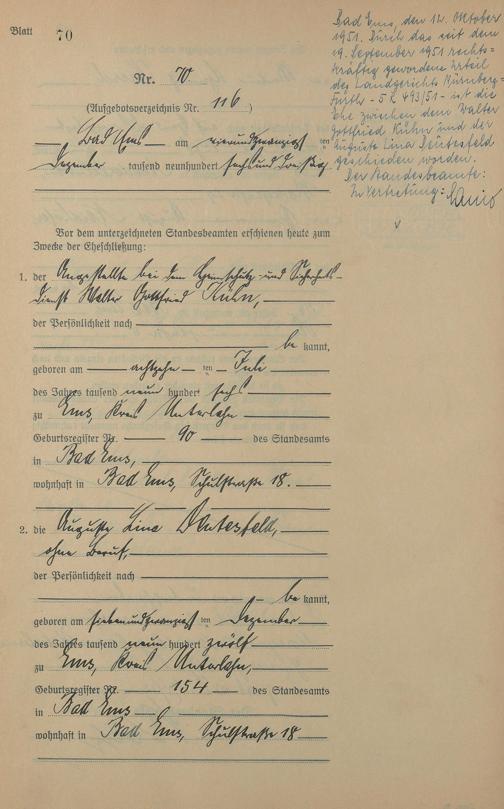 Blatt 70
Bad Ems, den 12. Oktober
1951. Durch das seit dem
19. September 1951 rechts=
kräftig gewordene Urteil
des Landgerichts Nürnberg=
Fürth - 5 R 493/51 - ist die
Ehe zwischen dem Walter
Gottfried Kühn und der
Auguste Lina Deutesfeld
geschieden worden.
Der Standesbeamte:
In Vertretung:
Nr. 70
(Aufgebotsverzeichnis Nr. 116)
Bad Ems am vierundzwanzigsten
Dezember tausend neunhundert sechsunddreißig
Vor dem unterzeichneten Standesbeamten erschienen heute zum
Zwecke der Eheschließung:
1. der Angestellte bei dem und Sicherheits-
dienst Walter Gottfried Kühn,
der Persönlichkeit nach
bekannt,
geboren am achtzehnten Juli
des Jahres tausend neunhundert sechs
zu Ems, Kreis Unterlahn
Geburtsregister Nr. 90 des Standesamts
in Bad Ems,
wohnhaft in Bad Ems, Schulstraße 18.
2. die Auguste Lina Deutesfeld,
ohne Beruf,
der Persönlichkeit nach
bekannt,
geboren am siebenundzwanzigsten Dezember
des Jahres tausend neunhundert zwölf
zu Ems, Kreis Unterlahn,
Geburtsregister Nr. 154 des Standesamts
in Bad Ems
wohnhaft in Bad Ems, Schulstraße 18